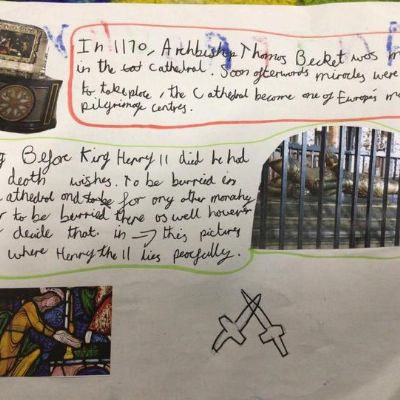 In 1170, Archbishop Thomas Becket was m
in the Cathedral. Soon afterwords miracles were
to take place, the Cathedral become one of Europs m
pilgrimage centres.
g Before King Henry II died he hd
death wishes. To be burried in
athedral and to be for any other monarhy
r to be berried there as well however
decide that in → this picture
where Henry the II lies peacfully.